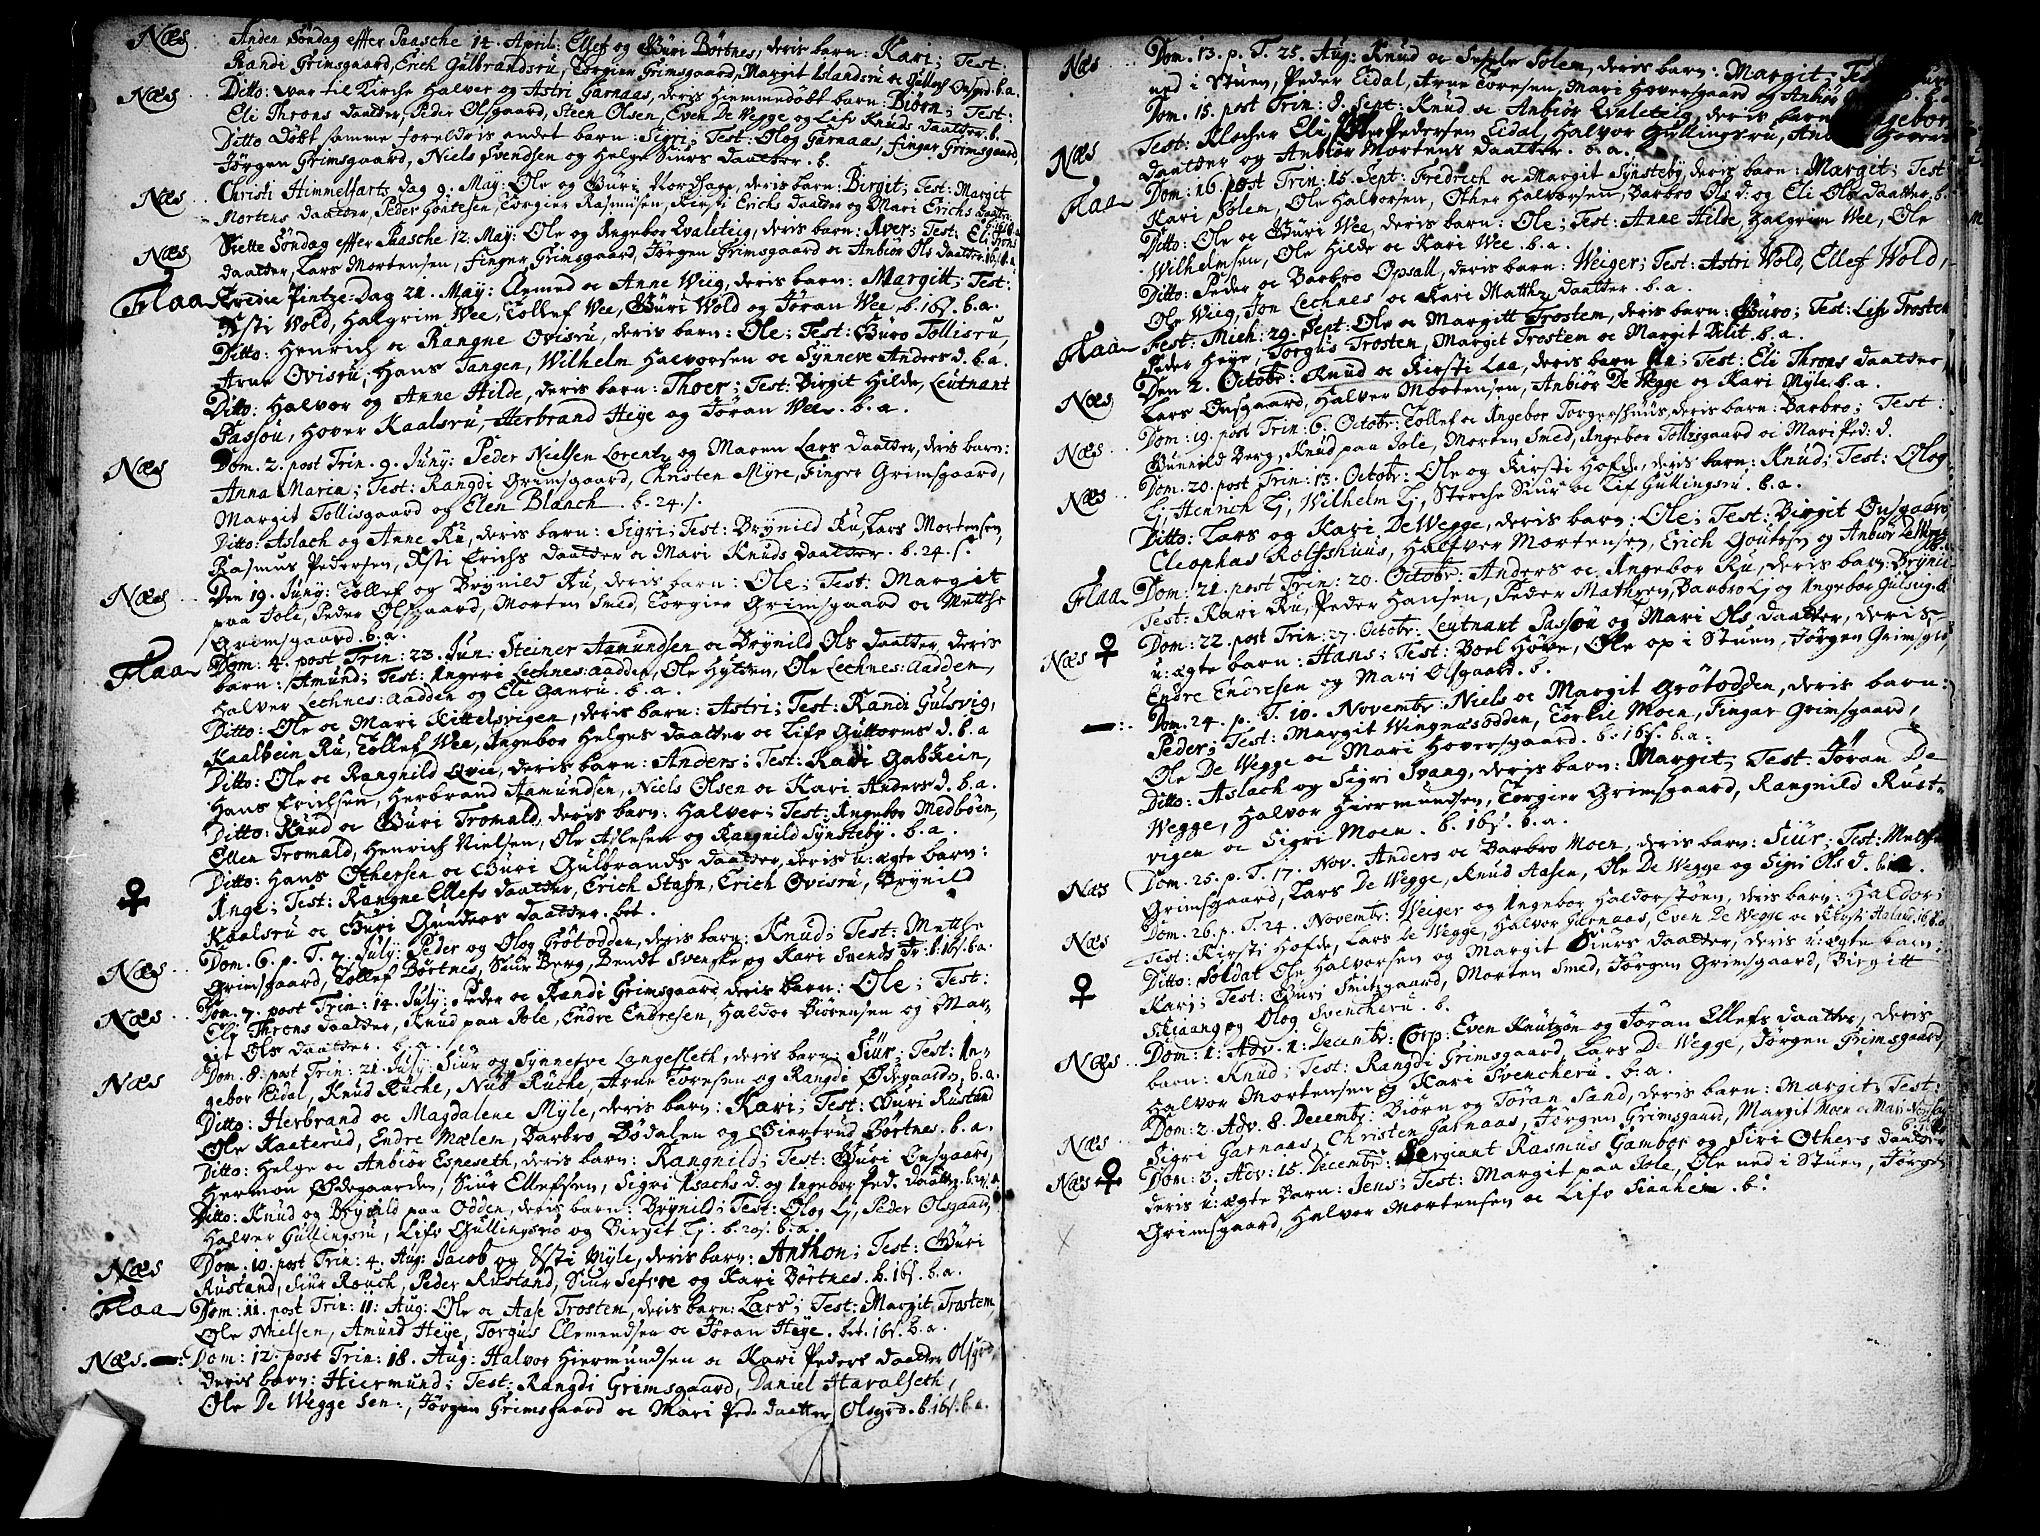 Næs. Anden Søndag effter Paasche 14. April: Ellef og Guri Börtnes, deris barn: Kari; Test:
Randi Grimsgaard, Erich Gulbrandsrü, Torgier Grimsgaard, Margit Islandsrü oc b.a.
Næs Ditto: var til Kirche Halver og Astri Garnaas, deris hiemmedøbt barn: Biörn; Test:
Eli Throns daatter, Peder Olsgaard, Steen Olsen, Even De Wegge og Lisv Knuds daatter. b.
Ditto Døbt samme foreldris andet barn: Sigri; Test: Olog Garnaas, Finger Grimsgaard,
Jørgen Grimsgaard, Niels Svendsen og Helge Siurs daatter. b.
Næs Christi Himmelfarts dag 9. May: Ole og Guri Nordhage, deris barn: Birgit; Test: Margit
Mortens daatter, Peder Goutesen, Torgier Rasmusen, Kirsti Erichs daatter og Mari Erichs daatter
Næs Siette Søndag effter Paasche 12. May: Ole og Angebor Qvaleteig, deris barn: Aver; Test: Eli Throns
daatter, Lars Mortensen, Finger Grimsgaard, Jørgen Grimsgaard oc Anbiör Ols daatter. b.a.
Flaa Tredie Pintze-Dag 21. May: Clemed oc Anne Wiig, deris barn: Margitt; Test:
Kisti Wold, Halgrim Wee, Tollef Wee, Guri Wold og Jøran Wee. b. 16s. b.a.
Ditto: Henrich oc Rangne Ovisrü, deris barn: Ole; Test: Guro Tollisrü,
Arne Ovisrü, Hans Tangen, Wilhelm Halvorsen oc Synneve Anders d. b.a.
Ditto: Halvor og Anne Hilde, deris barn: Thoer; Test: Birgit Hilde, Leutnant
Passou, Hover Kaalsrü, Herbrand Heye og Jøran Wee. b.a.
Næs Dom. 2. post Trin. 9. Juny: Peder Nielsen Lorentz og Maren Lars daatter, deris barn:
Anna Maria; Test: Rangdi Grimsgaard, Christen Myre, Finger Grimsgaard,
Margit Tollisgaard og Elen Blanch. b. 24. s.
Ditto: Aslach og Anne Ru, deris barn: Sigri; Test: Brynild Ru, Lars Mortensen,
Rasmus Pedersen, Kisti Erichs daatter oc Mari Knuds daatter. b. 24. s.
Næs Den 19. Juny: Tollef og Brynild Ru, deris barn: Ole; Test: Margit
paa Jole, Peder Olsgaard, Morten Smed, Torgier Grimsgaard oc Metthe
Grimsgaard. b.a.
Flaa Dom: 4. post Trin: 23. Jun: Steiner Aamundsen oc Brynild Ols daatter, deris
barn: Amund; Test: Angeri Lechnes:aadden, Ole Hylden, Ole Lechnes:aadden,
Halver Lechnes:aadden og Eli Ganrü. b.a.
Ditto: Ole oc Mari Kittelsvigen, deris barn: Astri; Test: Randi Gulsvig,
Kaalbein Ru, Tollef Wee, Angebor Helges daatter oc Lisv Guttorms d. b.a
Ditto: Ole oc Rangnild Qvie, deris barn: Anders; Test: Kari Gabrein,
Hans Erichsen, Herbrand Aamundsen, Niels Olsen oc Kari Anders d. b.a.
Ditto: Knud oc Guri Tromald, deris barn: Halver; Test: Angebor Medböen,
Ellen Tromald, Henrich Nielsen, Ole Aslesen og Rangnild Synsteby. b.a.
♀ Ditto: Hans Othersen oc Guri Gulbrands daatter, deris u:ægte barn:
Ange; Test: Rangne Ellefs daatter, Erich Stafn, Erich Ovisrü, Brynild
Kaalsrü oc Guri Gunders daatter. bet.
Næs Dom. 6. p. T. 7. July: Peder og Olog Grötodden, deris barn: Knud; Test: Metthe
Grimsgaard, Tollef Börtnes, Siur Berg, Bendt Svenske og Kari Svends d. b. 16s. b.a.
Næs Dom. 7. post Trin: 14. July: Peder oc Randi Grimsgaard, deris barn: Ole; Test:
Eli Throns daatter, Knud paa Jole, Endre Endresen, Haldor Biörensen og Mar-
git Ols daatter. b.a.
Næs Dom. 8. post Trin: 21. July: Siur og Synnefve Langesleth, deris barn: Siür; Test: An-
gebor Eidal, Knud Ruche, Nub Ruche, Arne Toresen og Rangdi Ødegaarden. b.a.
Ditto: Herbrand oc Magdalene Myle, deris barn: Kari; Test: Guri Rustand
Ole Kaaterud, Endre Mælem, Barbro Bödalen og Giertrud Börtnes. b.a.
Ditto: Helge oc Anbiör Espeseth, deris barn: Rangnild; Test: Guri Onsgaard,
Hermon Ødegaarden, Siur Ellefsen, Sigri Isachs d. og Angebor Ped. daatter. b.a.
Ditto: Knud og Brynild paa Odden, deris barn: Brynild; Test: Olog Lj, Peder Olsgaard,
Halver Gullingsrü, Lisv Gullingsrü og Birgit Lj. b. 20s. b.a.
Næs Dom. 10. post Trin: 4. Aug: Jacob og Kisti Myle, deris barn: Anthon; Test: Guri
Rustand, Siur Rouch, Peder Rustand, Siur Sefre og Kari Börtnes. b. 16s. b.a.
Flaa Dom: 11. post Trin: 11: Aug: Ole oc Aase Trostem, deris barn: Lars; Test: Margit Trostem,
Ole Nielsen, Amund Heye, Torgus Clemendsen oc Jøran Heye. bet. 16s. b.a.
Næs. Dom: 12. post Trin: 18. Aug: Halvor Hiermundsen oc Kari Peders daatter Olsgrd,
deris barn: Hiermund; Test: Rangdi Grimsgaard, Daniel Haralseth,
Ole De Wegge Sen:, Jørgen Grimsgaard oc Mari Ped. daatter Olsgrd. b. 16s. b.a.
Næs Dom. 13. p. T. 25. Aug: Knud oc Solem, deris barn: Margit;
ned i Stuen, Peder Eidal, Arne Toresen, Mari Hoversgaard og Anbiör b.a
Dom. 15. post Trin: 1. Sept: Knud oc Anbiör Qvaleteig, deris barn
Næs Test: Klocher Eli, Ole Pedersen Eidal, Halvor Gullingsrü,
daatter og Anbiör Mortens daatter. b.a.
Flaa Dom: 16. post Trin: 15. Sept: Fredrich oc Margit Synsteby, deris barn: Margit; Test:
Kari Solem, Ole Halvorsen, Other Halvorsen, Barbro Ols d: og Eli Ols daatter. b.
Ditto: Ole oc Guri Wee, deris barn: Ole; Test: Anne Hilde, Halgrim Wee, Ole
Wilhelmsen, Ole Hilde oc Kari Wee. b.a.
Ditto: Peder oc Barbro Opsall, deris barn: Weiger; Test: Astri Wold, Ellef Wold,
Ole Weig, Jon Lechnes oc Kari Matthz daatter. b.a.
Flaa Fest: Mich: 29. Sept: Ole oc Margitt Trostem, deris barn: Guro; Test: Lisv Trosten
Peder Heye, Torgus Trosten, Margit Trostem oc Margit Ulit. b.a.
Næs Den 2. Octobr: Knud oc Kirsti Laa, deris barn ; Test: Eli Throns daatter,
Lars Onsgaard, Halver Mortensen, Anbiör De Wegge oc Kari Myle. b.a.
Næs Dom: 19. post Trin: 6. Octobr: Tollef oc Angebor Torgershuus, deris barn: Barbro; Test:
Gunnild Berg, Knud paa Jole, Morten Smed, Angebor Tollisgaard oc Mari Ped: d.
Næs Dom. 20. post Trin: 13. Octobr: Ole og Kirsti Hofde, deris barn: Knud; Test: Olog
Lj, Henrich Lj, Wilhelm Lj, Sterche Siur oc Lif Gullingsrü. b.a.
Ditto: Lars og Kari De Wegge, deris barn: Ole; Test: Birgit Onsgaard
Cleophas Rolfshuus, Halfver Mortensen, Erich Goutesen og Anbiör De Wegge
Flaa Dom: 21. post Trin: 20. Octobr: Anders oc Angebor Ru, deris barn: Brynil
Test: Kari Ru, Peder Hansen, Peder Mathren, Barbro Lj og Angebor Gulsvig. b.
Næs ♀ Dom: 22. post Trin: 27. Octobr: Leutnant Passou og Mari Ols daatter, deris
u:ægte barn: Hans; Test: Boel Høve, Ole op i Stuen, Jørgen Grimsgrd,
Endre Endresen og Mari Olsgaard. b.
Dom. 24. p. T. 10. Novembr: Niels oc Margit Grötodden, deris barn:
Peder; Test: Margit Wingnæsodden, Torkil Moen, Fingar Grimsgaard,
Ole De Wegge oc Mari Hoversgaard. b. 16s. b.a.
Ditto: Aslach og Sigri Svang, deris barn: Margit; Test: Jøran De
Wegge, Halvor Hiermundsen, Torgier Grimsgaard, Rangnild Rust-
vigen oc Sigri Moen. b. 16s. b.a.
Næs Dom. 25. p. T. 17. Nov. Anders oc Barbro Moen, deris barn: Siür; Test: Metthe
Grimsgaard, Lars De Wegge, Knud Aasen, Ole De Wegge og Sigri Ols d. b.a.
Næs Dom. 26. p. T. 24. Novembr: Weiger og Angebor Haldorstøen, deris barn: Haldor;
Test: Kirsti Hofde, Lars De Wegge, Halvor Garnaas, Even De Wegge oc Kirsti Aaland. 16s. b.a
♀ Ditto: Soldat Ole Halvorsen og Margit Siurs daatter, deris u:ægte barn:
Kari; Test: Guri Smitzgaard, Morten Smed, Jørgen Grimsgaard, Birgitt
Skiaang og Olog Svencheru. b.
Næs Dom: 1. Adv. 1. Decembr: Corp: Even Knutzøn og Jøran Ellefs daatter, deris
barn: Knud; Test: Rangdi Grimsgaard, Lars De Wegge, Jørgen Grimsgaard,
Halvor Mortensen og Kari Svencheru. b.a.
Næs Dom: 2. Adv. 8. Decembr: Biörn og Jøran Sand, deris barn: Margit; Test:
Sigri Garnaas, Christen Garnaas, Jørgen Grimsgaard, Margit Moen oc Mari
Næs ♀ Dom: 3. Adv: 15. Decembr: Sergiant Rasmus Gambor og Siri Others daatter
deris u:ægte Barn: Jens; Test: Margit paa Jole, Ole ned i Stuen, Jørgen
Grimsgaard, Halvor Mortensen oc Lisv Siaahem. b: